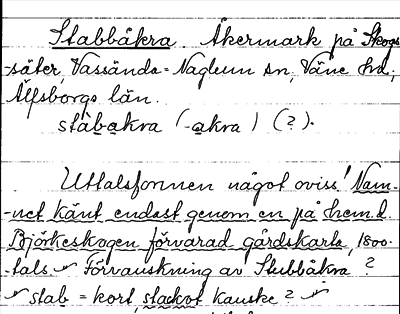 Stabbåkra Åkermark på Skogs-
-säter, Vassända-Naglum sn, Väne hd,
Älfsborgs län.
stabakra (-akra) (?).
Uttalsformen något oviss! Nam-
-net känt endast genom en på hem.d.
Björkeskogen förvarad gårdskarta, 1800-
-tals. Förvanskning av Stubbåkra?
stab = kort, stackot kanske?